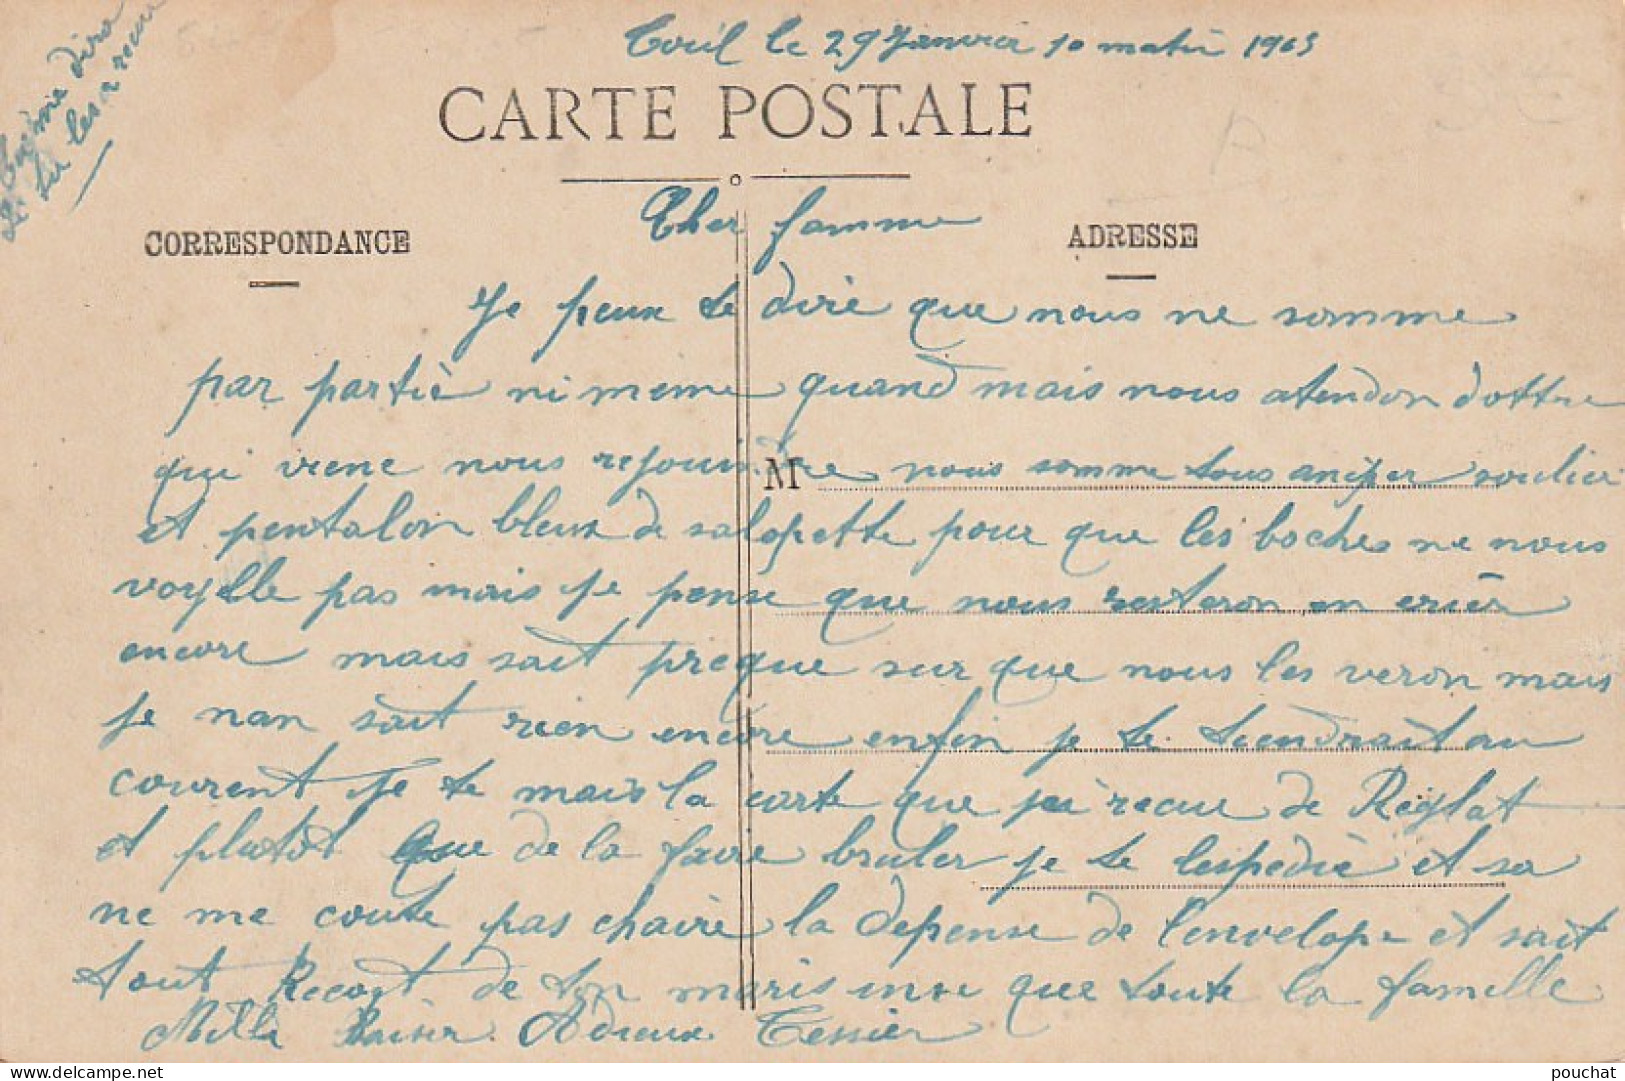 Eugénie dira
si tu les a recu
Toul le 29 Janvier 10 matin 1915
CARTE POSTALE
CORRESPONDANCE
ADRESSE
Cher famme
Je peux te dire que nous ne somme
par partie ni meme quand mais nous atendon d'ottre
qui viene nous rejoindre nous somme tous aniper soulier
M
et pentalon bleux de salopette pour que les boches ne nous
voyelle pas mais je pense que nous resteron en erière
encore mais sait preque sur que nous les veron mais
je nan sait rien encore enfin je te tiendrait au
courent je te mais la carte que jai recue de Réglat
et plutot que de la faire bruler je te lespedie et sa
ne me coute pas chaire la depense de l'envelope et sait
tout Recoit de ton maris insi que toute la famille
Mille Baiser Adieux Tessier
pouchat